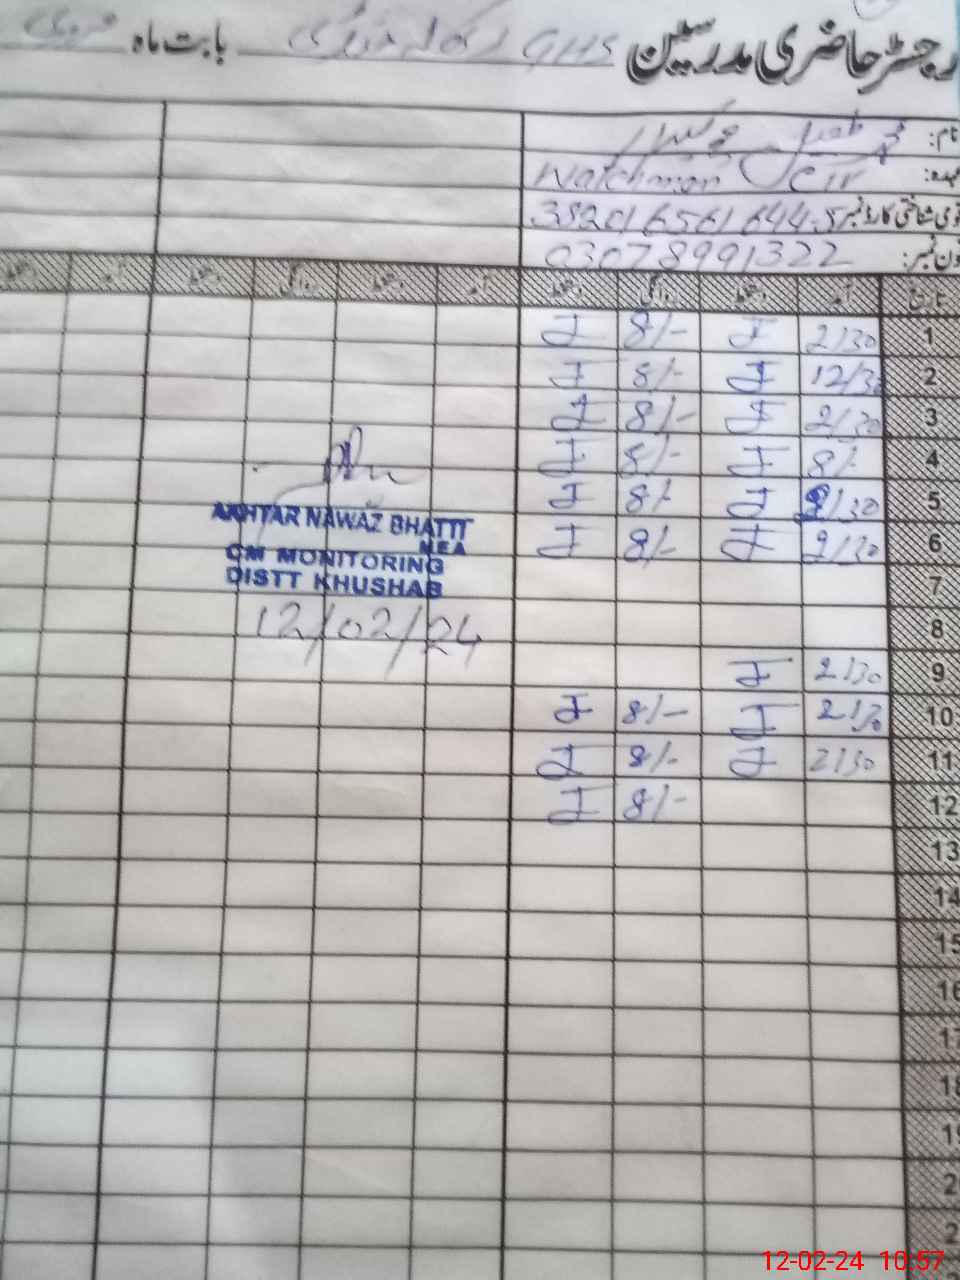 رجسٹر حاضری مدرسین GHS بابت ماہ
نام:
عہدہ: Watchman
قومی شناختی کارڈ نمبر 382016561644-5
فون نمبر: 03078991322
تاریخ آمد دستخط روانگی دستخط آمد دستخط روانگی دستخط آمد دستخط
1 2/30 8/-
2 12/30 8/-
3 2/30 8/-
4 8/- 8/-
5 2/30 8/-
6 2/30 8/-
7
8
9 2/30
10 2/30 8/-
11 2/30 8/-
12 8/-
13
14
15
16
17
18
19
2
2
AKHTAR NAWAZ BHATTI
MEA
CM MONITORING
DISTT KHUSHAB
12/02/24
12-02-24 10:57